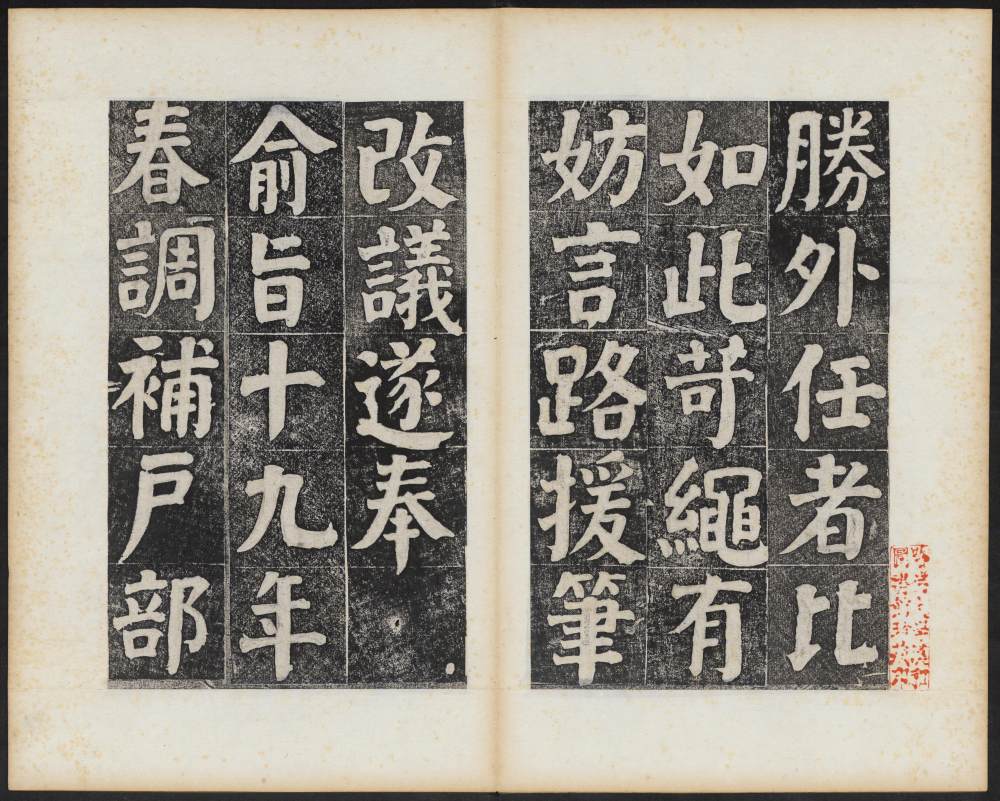 勝外任者比
如此苛繩有
妨言路援筆
改議遂奉
俞旨十九年
春調補戶部